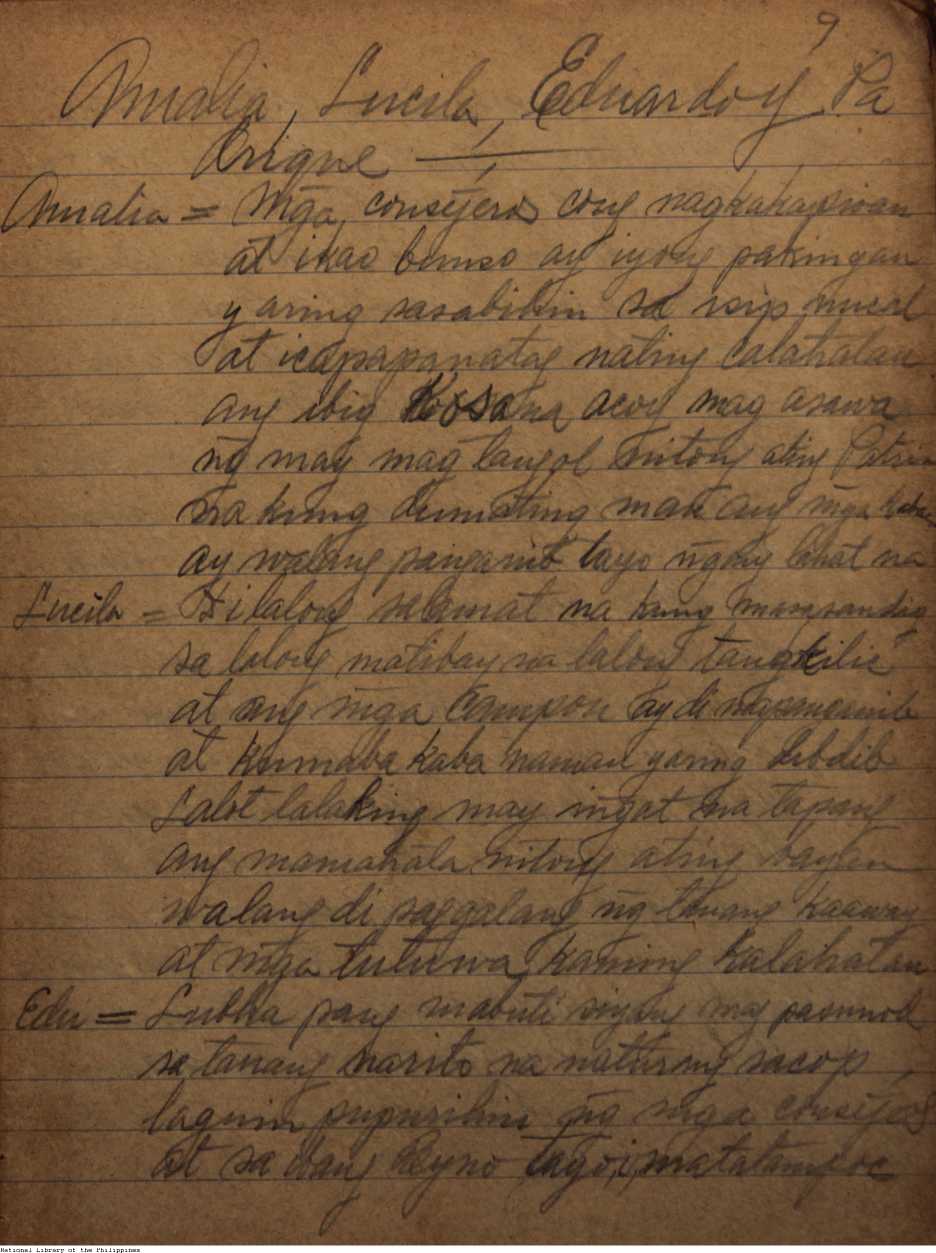 9
Amalia, Lucila, Eduardo y Pa
Enrique
Amalia = Mga consejeros cong nagkakapisan
at ikao bunso ay iyong pakingan
yaring sasabihin sa isip mucal
at icapapanatag nating calahatan
ang ibig Ko sana acoy mag asawa
ng may mag tangol nitong ating Patria
na kung dumating man ang mga
ay walang panganib tayo ngang lahat na
Lucila = Di lalong salamat na kung masasandig
sa lalong matibay na lalong tangkilic
at ang mga campon ay di mapanganib
at kumaba kaba naman yaring dibdib
Sabt lalaking may ingat na tapang
ang mamahala nitong ating bayan
walang di paggalang ng tanang kaaway
at mga tutuwa kaming kalahatan
Edu = Lubha pang mabuti niyang may pasunod
sa tanang narito na naturang sacop
laguin pupurihin ng mga consejeros
at sa ibang Reyno tayo,i, matatampoc
National Library of the Philippines